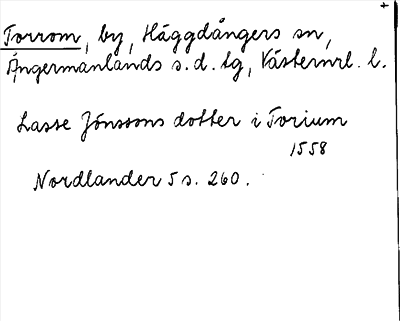 Torrom, by, Häggdångers sn,
Ångermanlands s.d. tg, Västernrl. l.
Lasse Jönssons dotter i Torium
1558
Nordlander 5 s. 260.